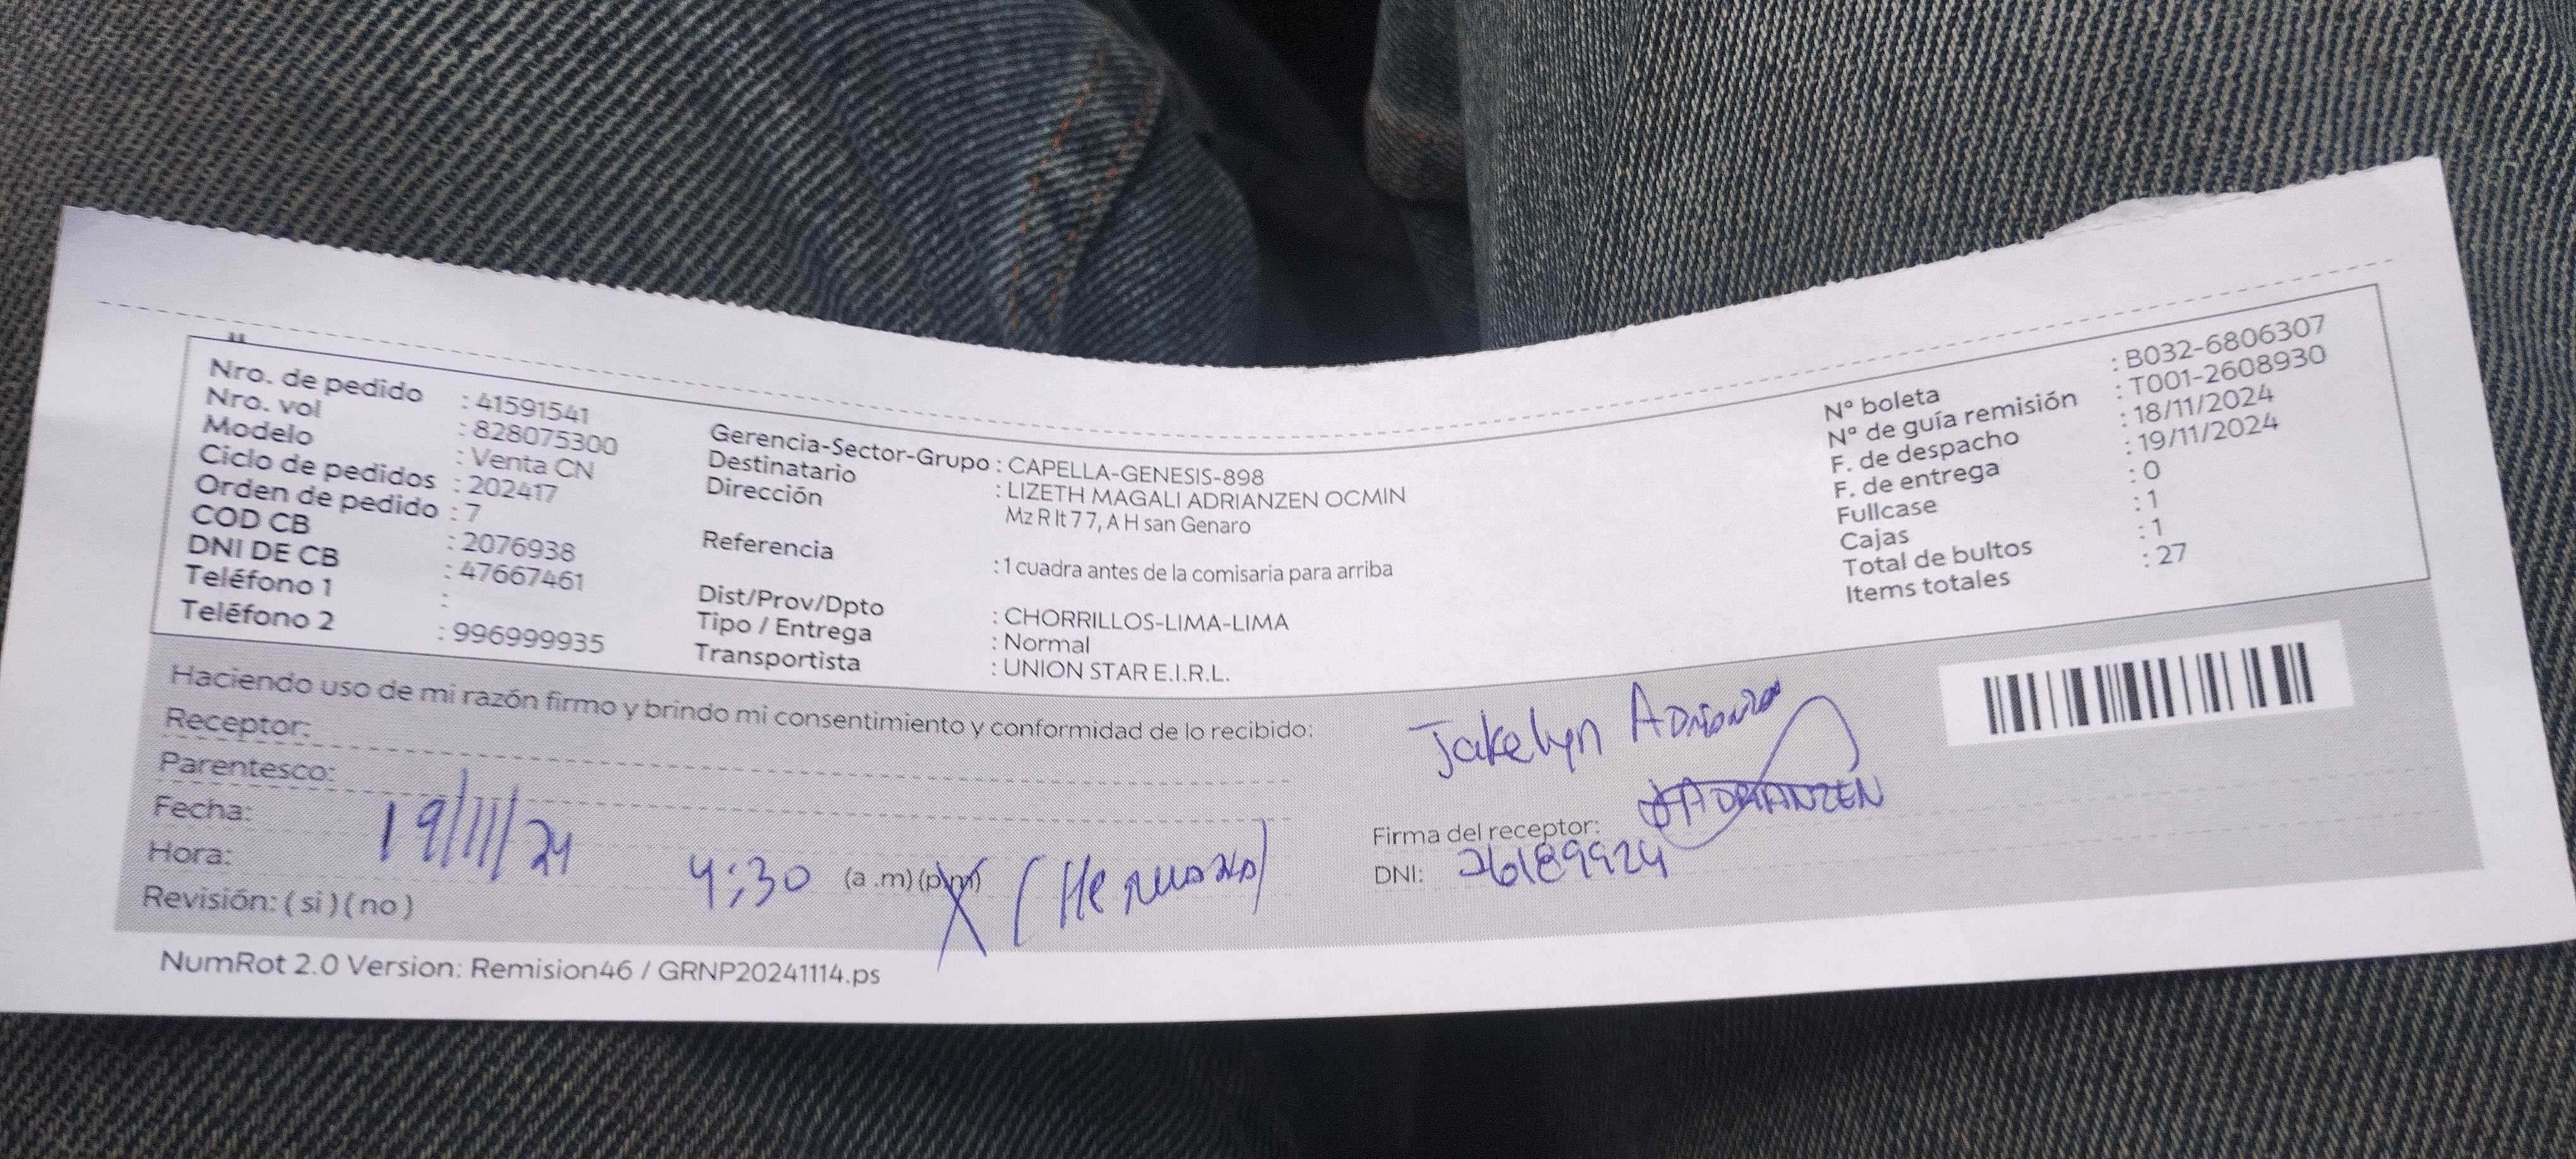 Nro. de pedido : 41591541
Nro. vol : 828075300
Modelo : Venta CN
Ciclo de pedidos : 202417
Orden de pedido : 7
COD CB : 2076938
DNI DE CB : 47667461
Teléfono 1 :
Teléfono 2 : 996999935
Gerencia-Sector-Grupo : CAPELLA-GENESIS-898
Destinatario : LIZETH MAGALI ADRIANZEN OCMIN
Dirección Mz R lt 7 7, A H san Genaro
Referencia : 1 cuadra antes de la comisaria para arriba
Dist/Prov/Dpto : CHORRILLOS-LIMA-LIMA
Tipo / Entrega : Normal
Transportista : UNION STAR E.I.R.L.
N° boleta : B032-6806307
N° de guía remisión : T001-2608930
F. de despacho : 18/11/2024
F. de entrega : 19/11/2024
Fullcase : 0
Cajas : 1
Total de bultos : 1
Items totales : 27
Haciendo uso de mi razón firmo y brindo mi consentimiento y conformidad de lo recibido:
Receptor:
Parentesco:
Fecha: 19/11/24
Hora: 4:30 (a .m) (p.m) (Hermana)
Revisión: ( si ) ( no )
Jakelyn Adrianzen
Firma del receptor: ADRIANZEN
DNI:
NumRot 2.0 Version: Remision46 / GRNP20241114.ps